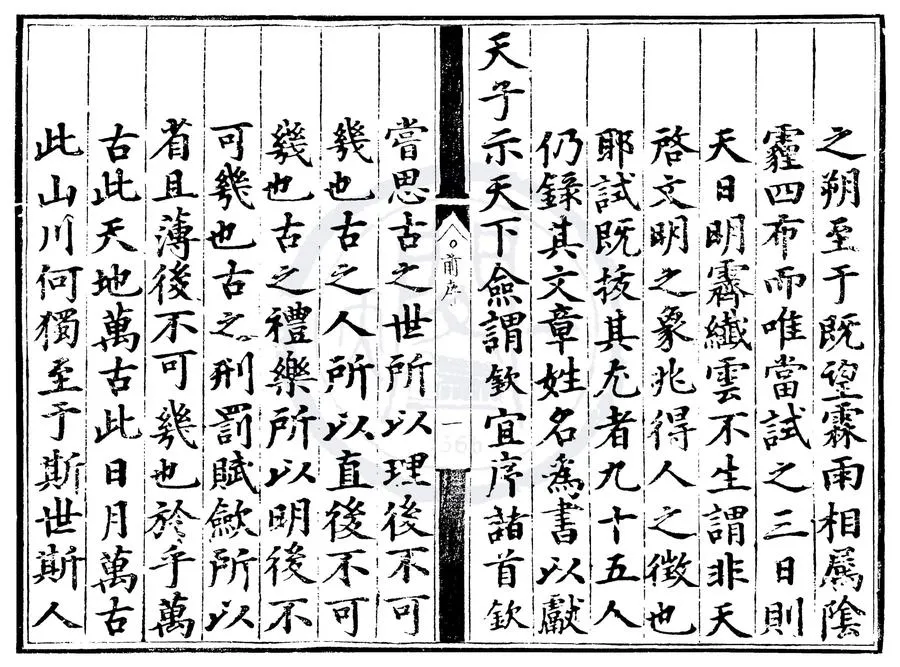 之朔至于既望霖雨相屬陰
霾四布而唯當試之三日則
天日明霽纖雲不生謂非天
啓文明之象兆得人之徵也
耶試既拔其尤者九十五人
仍錄其文章姓名爲書以獻
天子示天下僉謂欽宜序諸首欽
前序
一
嘗思古之世所以理後不可
幾也古之人所以直後不可
幾也古之禮樂所以明後不
可幾也古之刑罰賦歛所以
省且薄後不可幾也於乎萬
古此天地萬古此日月萬古
此山川何獨至于斯世斯人